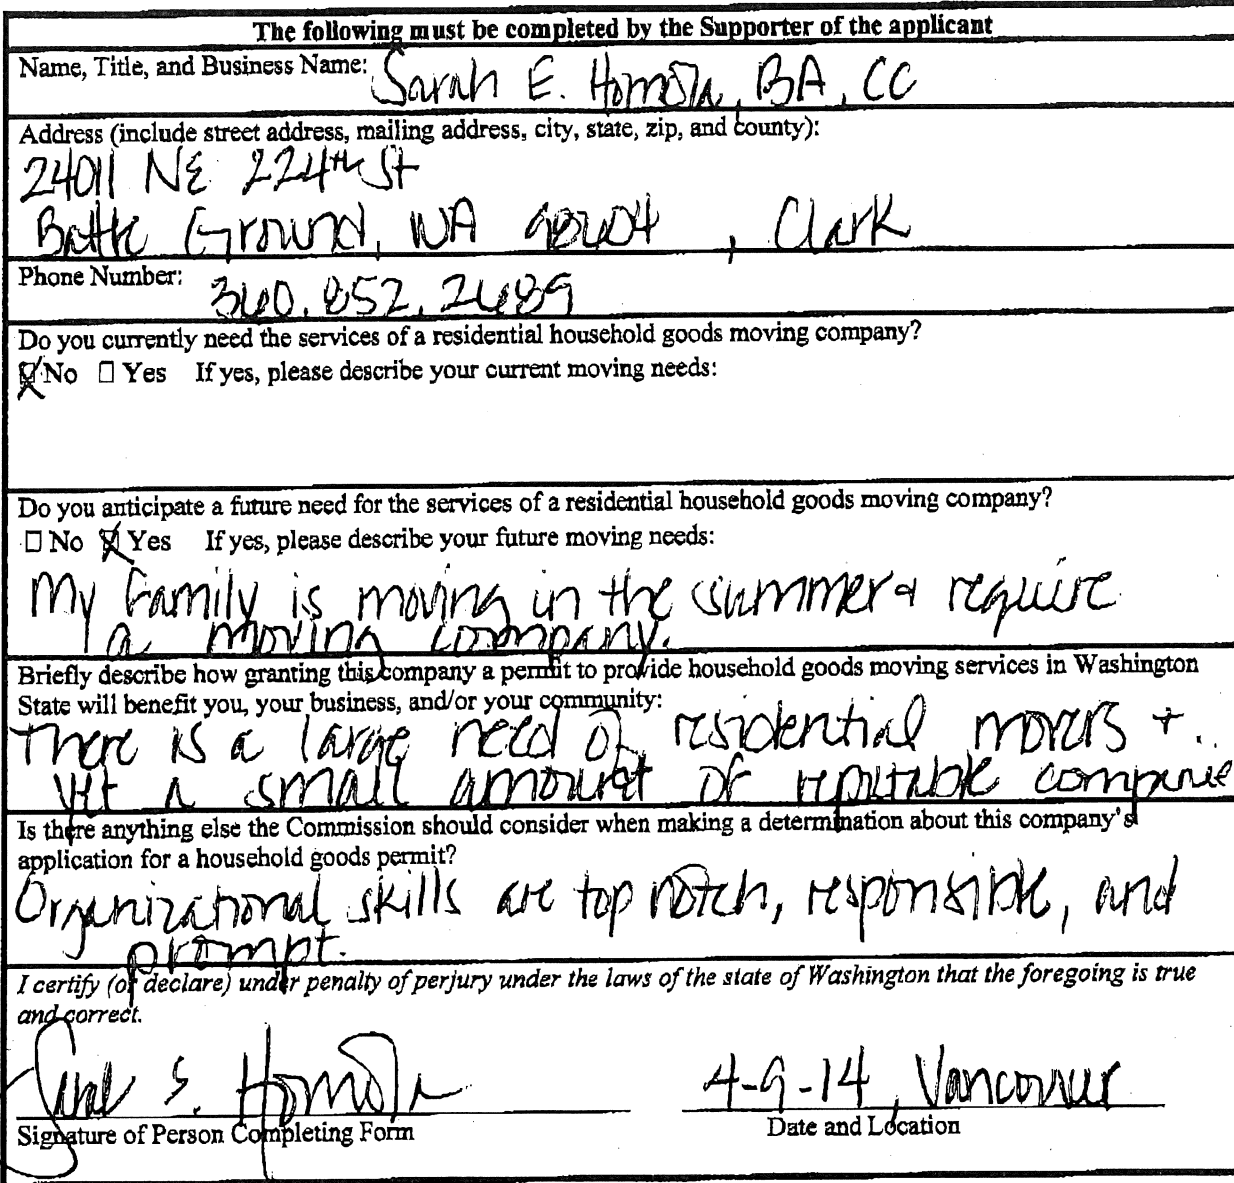 The following must be completed by the Supporter of the applicant
Name, Title, and Business Name: Sarah E. Homola, BA, CC
Address (include street address, mailing address, city, state, zip, and county):
24011 NE 224th St
Battle Ground, WA 98604, Clark
Phone Number: 360.852.2689
Do you currently need the services of a residential household goods moving company?
☒ No ☐ Yes If yes, please describe your current moving needs:
Do you anticipate a future need for the services of a residential household goods moving company?
☐ No ☒ Yes If yes, please describe your future moving needs:
My family is moving in the summer & require
a moving company.
Briefly describe how granting this company a permit to provide household goods moving services in Washington
State will benefit you, your business, and/or your community:
There is a large need of residential movers +
yet a small amount of reputable companie
Is there anything else the Commission should consider when making a determination about this company's
application for a household goods permit?
Organizational skills are top notch, responsible, and
prompt.
I certify (or declare) under penalty of perjury under the laws of the state of Washington that the foregoing is true
and correct.
Homola 4-9-14, Vancouver
Signature of Person Completing Form Date and Location